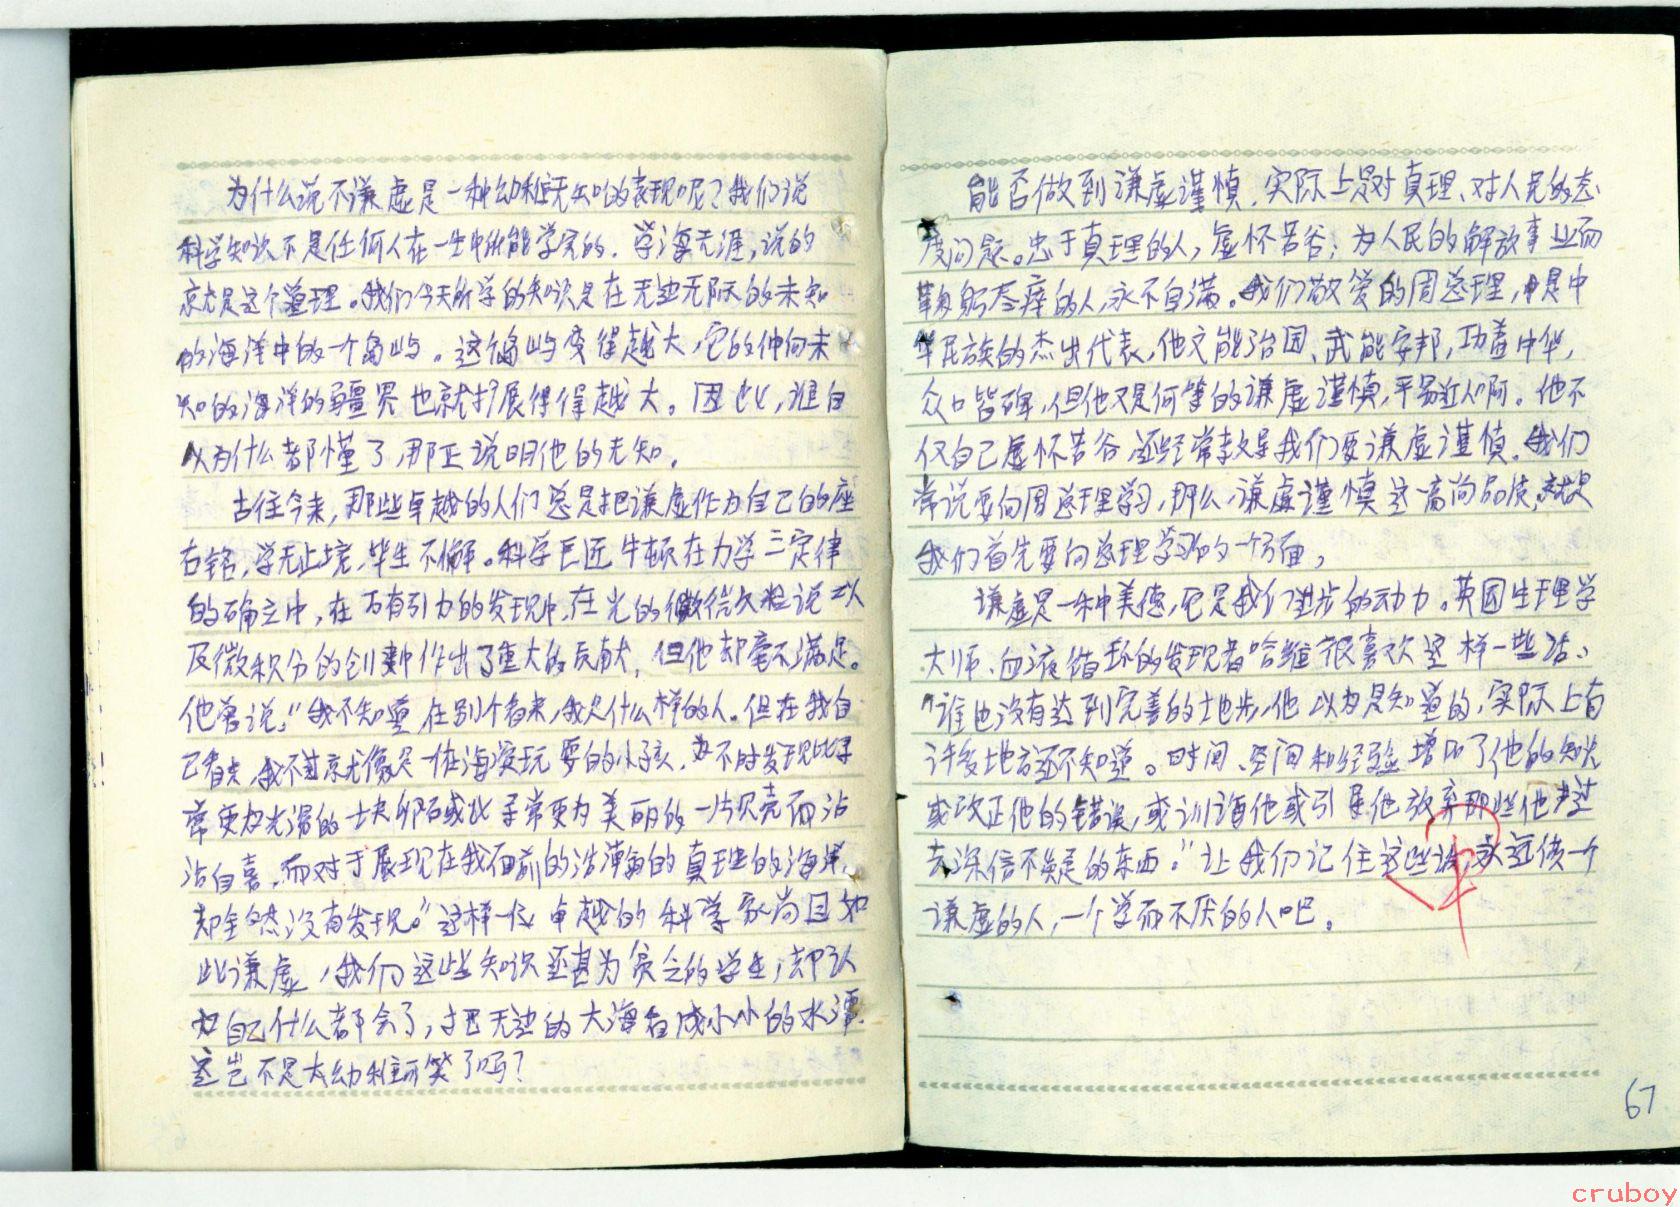 为什么说不谦虚是一种幼稚无知的表现呢？我们说
科学知识不是任何人在一生中所能学完的．学海无涯，说的
就是这个道理。我们今天所学的知识是在无边无际的未知
的海洋中的一个岛屿。这个岛屿变得越大，它的伸向未
知的海洋的疆界也就扩展得越大。因此，谁自
以为什么都懂了，那正说明他的无知．
古往今来，那些卓越的人们总是把谦虚作为自己的座
右铭，学无止境，毕生不懈。科学巨匠牛顿在力学三定律
的确立中，在万有引力的发现中，在光的微粒说以
及微积分的创新作出了重大的贡献，但他却毫不满足。
他曾说：“我不知道在别个看来，我是什么样的人。但在我自
己看来，我不过就像是一位海滨玩耍的小孩，为不时发现比寻
常更为光滑的一块卵石或比寻常更为美丽的一片贝壳而沾
沾自喜，而对于展现在我面前的浩瀚的真理的海洋，
却全然没有发现。”这样一位卓越的科学家尚且如
此谦虚，我们这些知识还甚为贫乏的学生，却认
为自己什么都会了，把无边的大海看成小小的水潭，
这岂不是太幼稚可笑了吗？
能否做到谦虚谨慎，实际上是对真理、对人民的态
度问题。忠于真理的人，虚怀若谷；为人民的解放事业而
鞠躬尽瘁的人，永不自满。我们敬爱的周总理，是中
华民族的杰出代表，他文能治国、武能安邦，功盖中华，
众口皆碑，但他又是何等的谦虚谨慎，平易近人啊。他不
仅自己虚怀若谷，还经常教导我们要谦虚谨慎．我们
常说要向周总理学习，那么，谦虚谨慎这一高尚品质，就是
我们首先要向总理学习的一个方面，
谦虚是一种美德，它是我们进步的动力。英国生理学
大师、血液循环的发现者哈维很喜欢这样一些话：
“谁也没有达到完善的地步，他以为是知道的，实际上有
许多地方还不知道。时间、空间和经验增加了他的知识
或改正他的错误，或训诲他或引导他放弃那些他过
去深信不疑的东西。”让我们记住这些话，永远做一个
谦虚的人，一个学而不厌的人吧．
67
cruboy